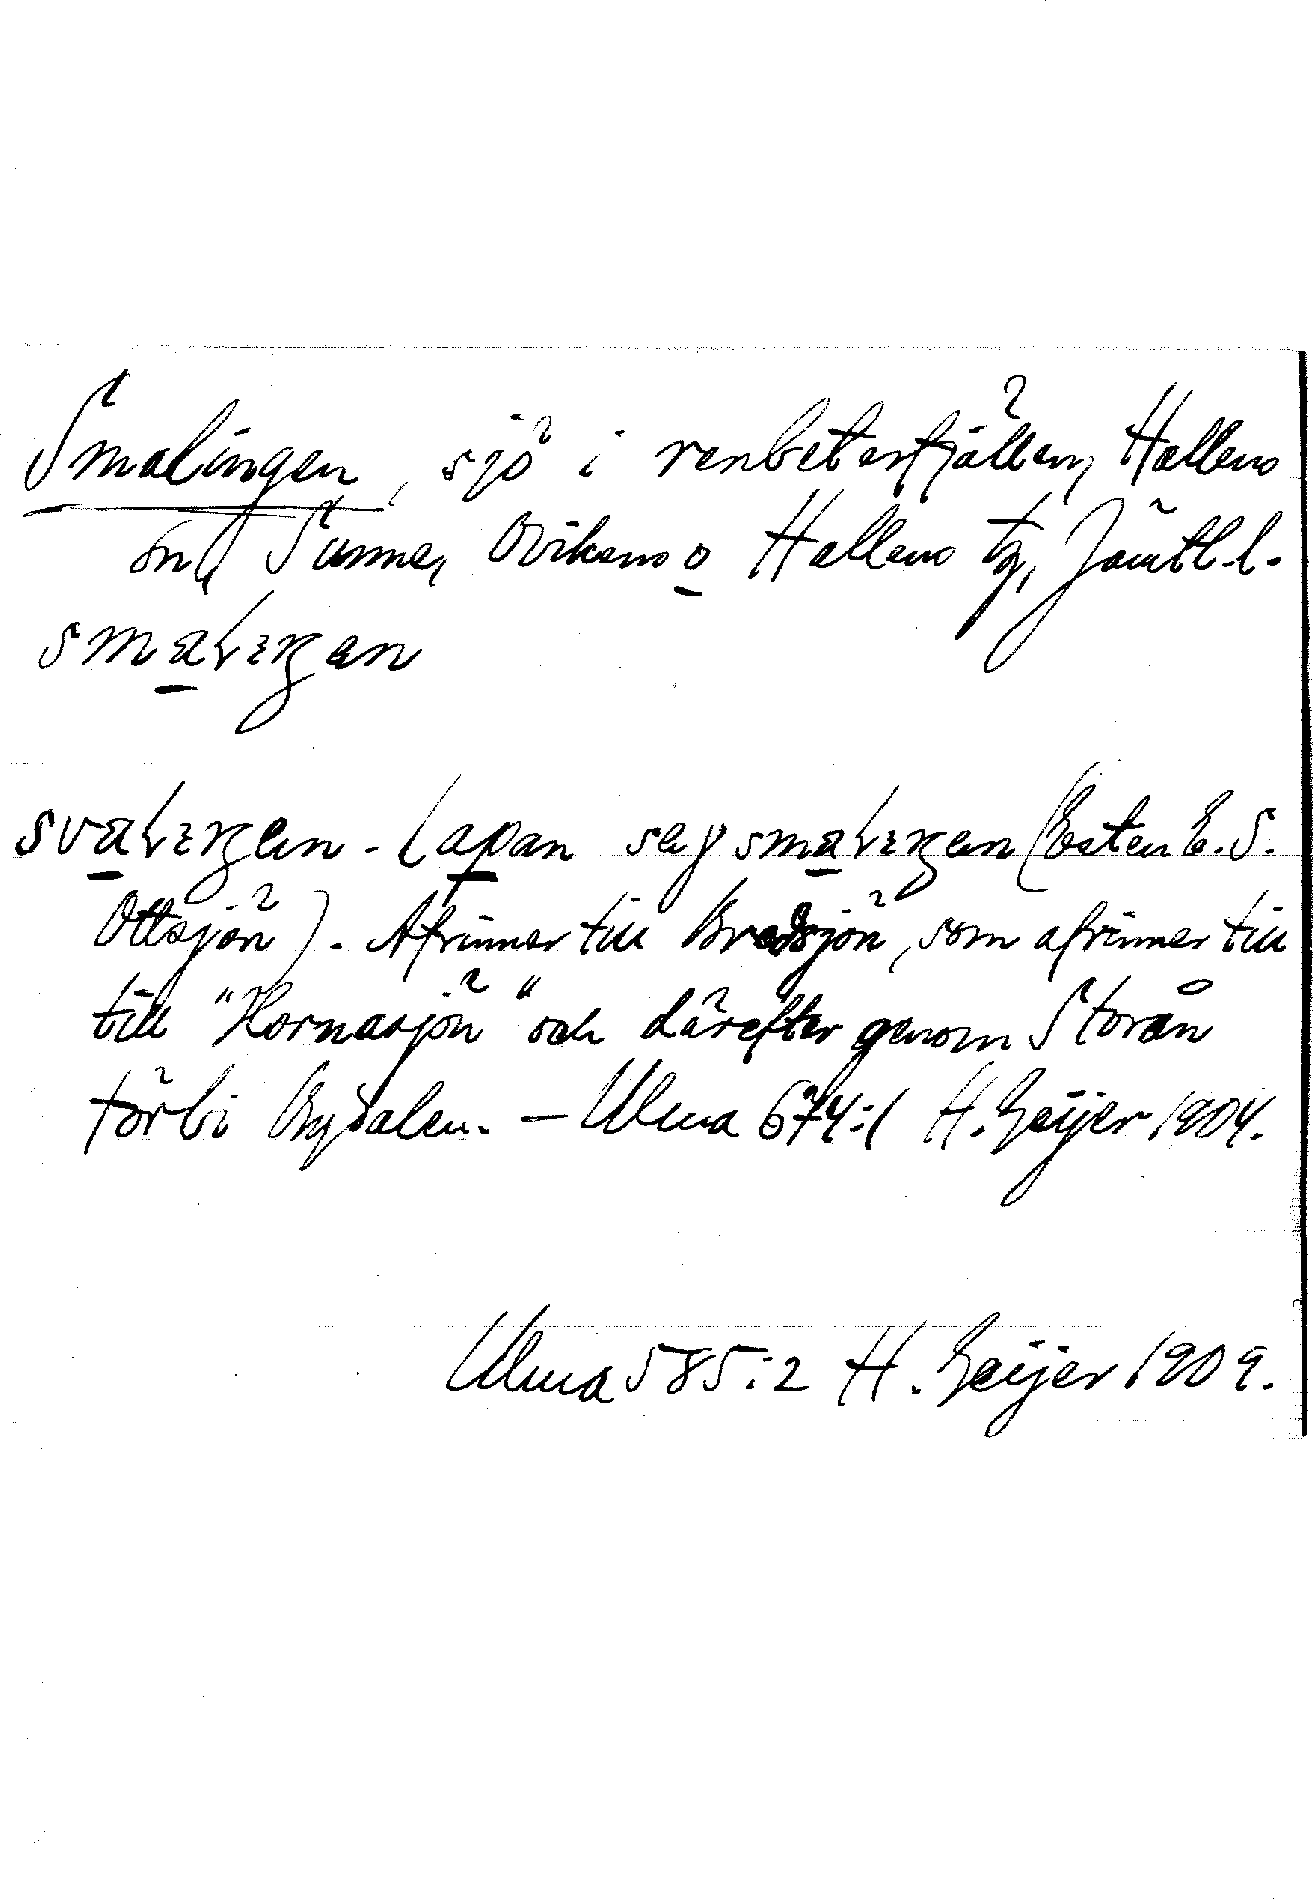 Smalingen, sjö i renbetesfjällen, Hallens
sn, Sunne, Ovikens o Hallens tg, Jämtl. l.
smalıŋen
svalıŋen - lapan say smalıŋen (Esten E. S.
Ottsjön). Afrinner till Bredsjön, som afrinner till
till "Hornasjön" och därefter genom Storån
förbi Bydalen. — Ulma 674:1 H. Geijer 1904.
Ulma 585:2 H. Geijer 1909.